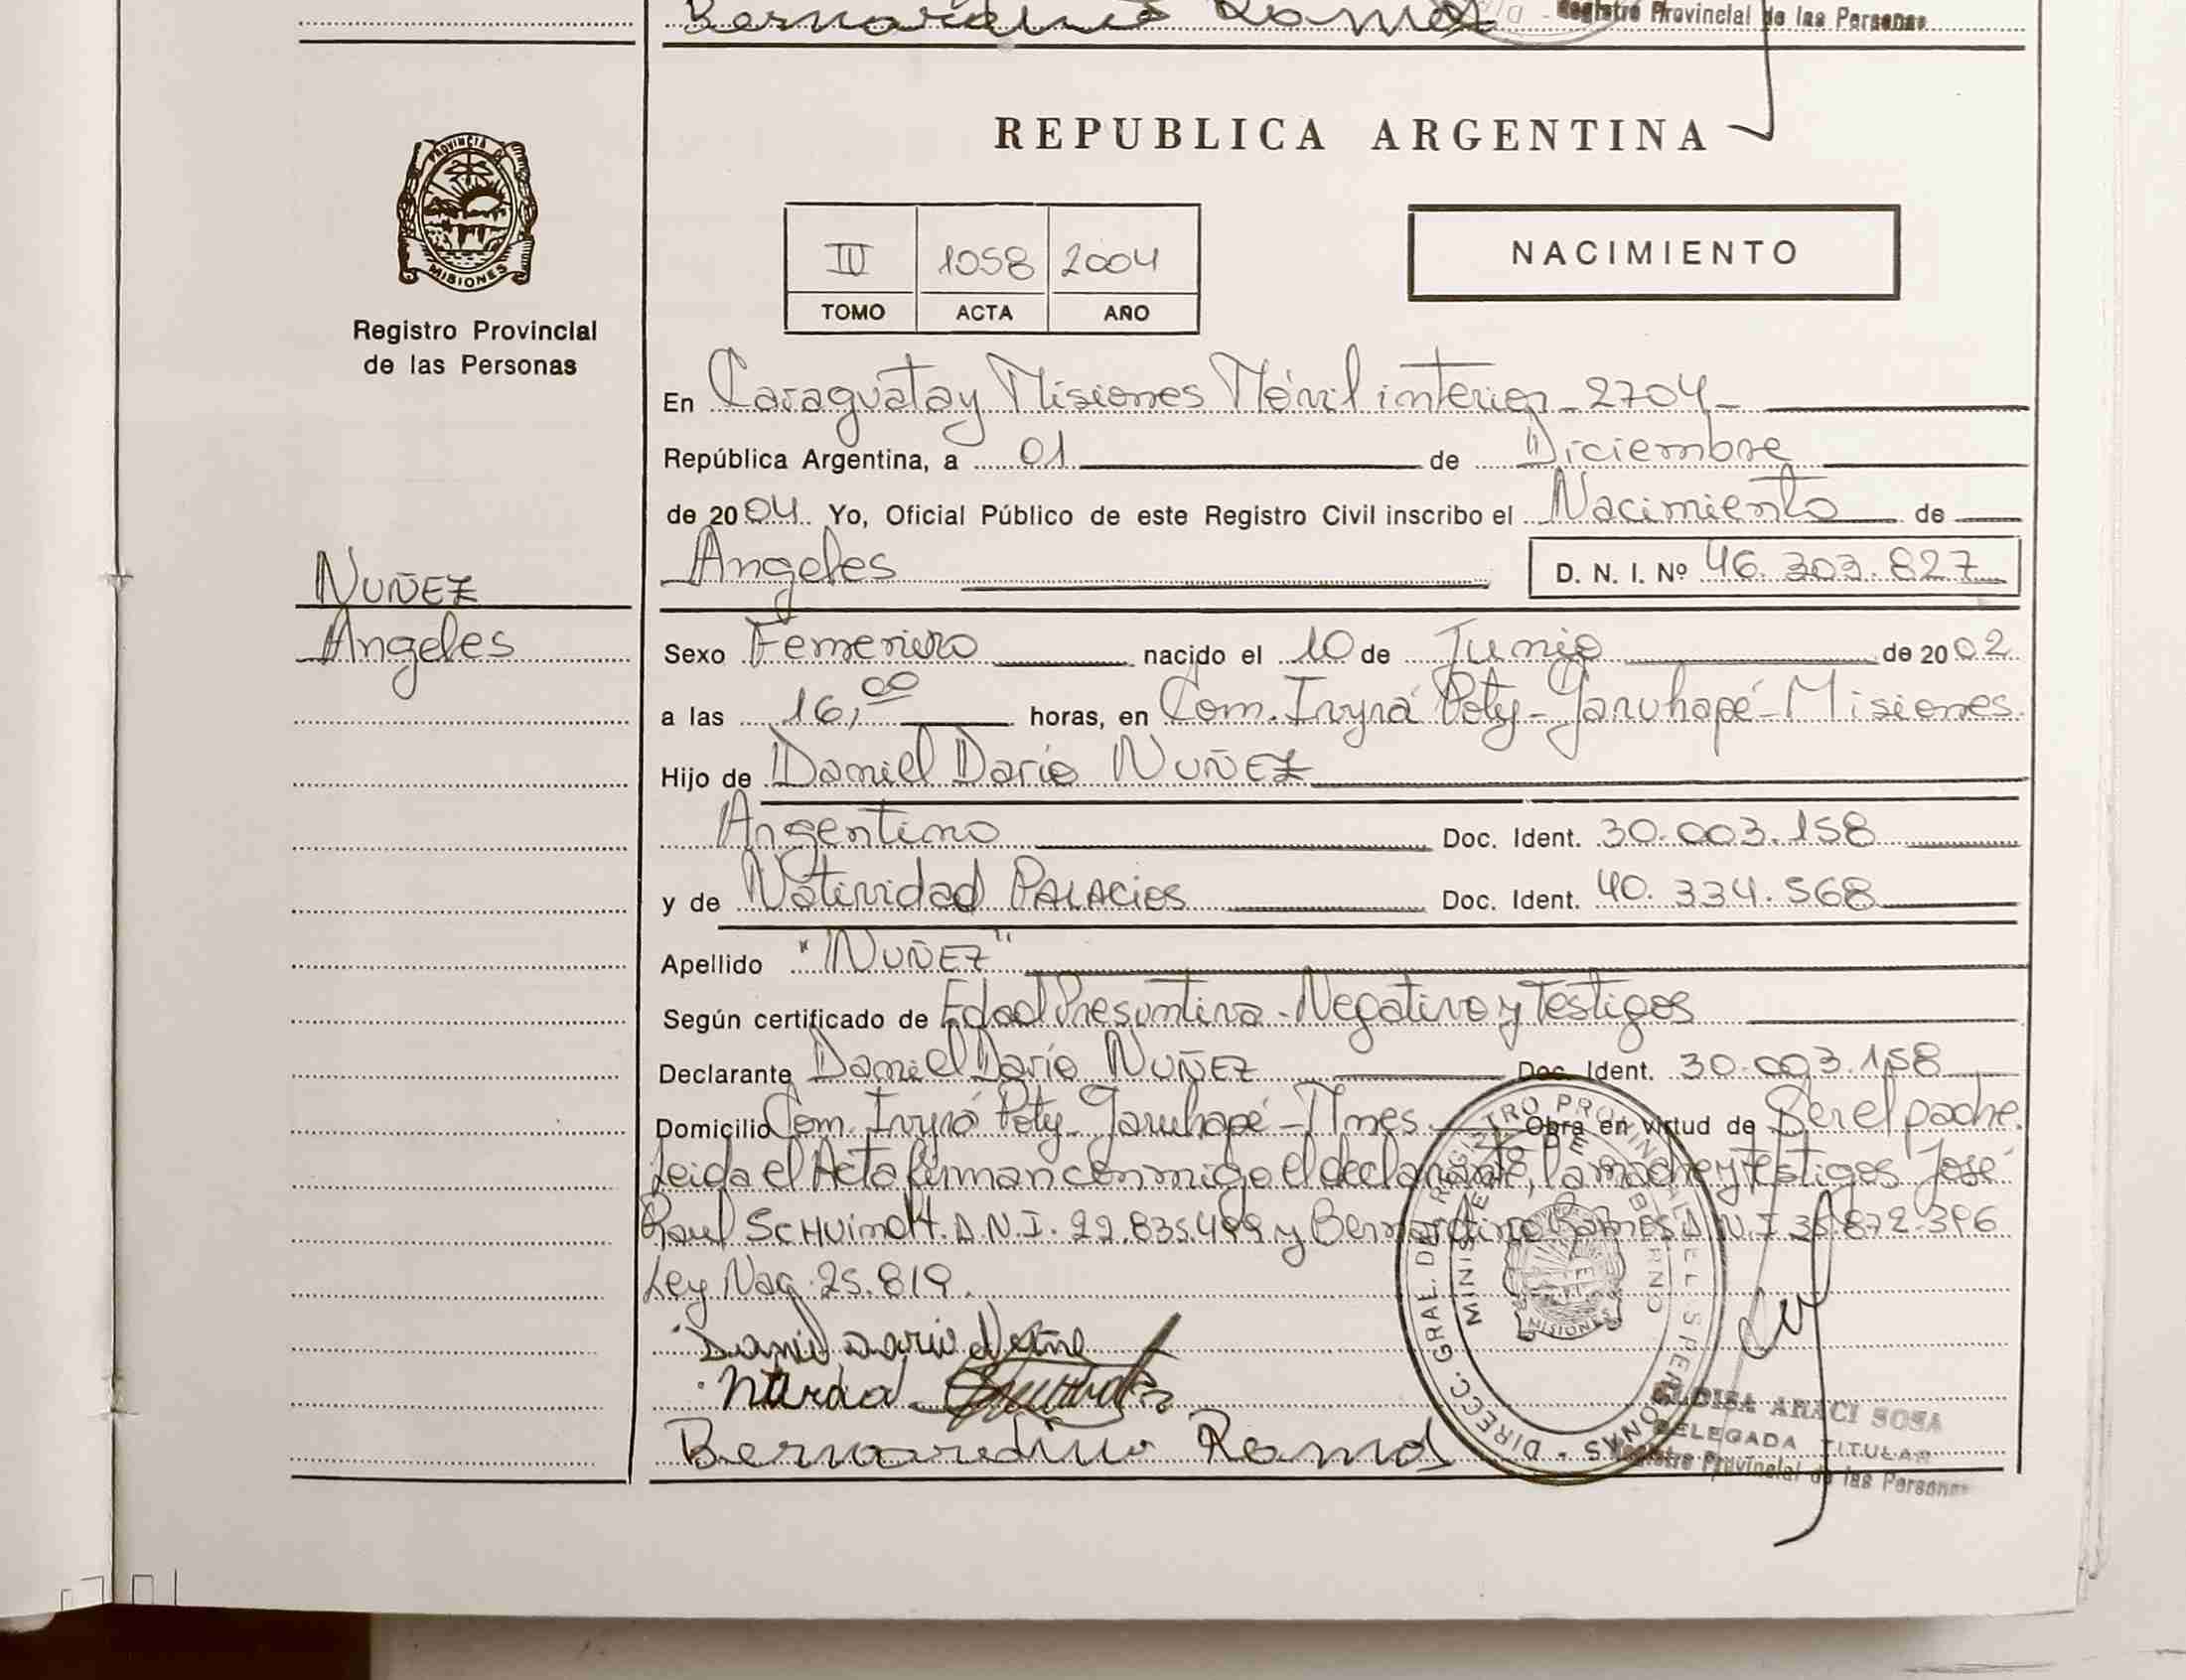 Bernardino Ramos
Registro Provincial de las Personas
REPUBLICA ARGENTINA
PROVINCIA DE
MISIONES
Registro Provincial
de las Personas
III 1058 2004
TOMO ACTA AÑO
NACIMIENTO
En Caraguatay Misiones Móvil interior - 2704 -
República Argentina, a 01 de Diciembre
de 2004. Yo, Oficial Público de este Registro Civil inscribo el Nacimiento de
NUÑEZ
Angeles
Angeles D. N. I. Nº 46.303.827
Sexo Femenino nacido el 10 de Junio de 2002
a las 16,00 horas, en Com. Ivyrá Poty - Garuhapé - Misiones.
Hijo de Daniel Darío NUÑEZ
Argentino Doc. Ident. 30.003.158
y de Natividad PALACIOS Doc. Ident. 40.334.568
Apellido "NUÑEZ"
Según certificado de Edad Presuntiva - Negativo y Testigos
Declarante Daniel Darío NUÑEZ Doc. Ident. 30.003.158
Domicilio Com. Ivyrá Poty - Garuhapé - Mnes Obra en virtud de Ser el padre.
Leida el Acta firman conmigo el declarante, la madre y testigos José
Raul SCHUindt. D.N.I. 22.835.499 y Bernardino Ramos D.N.I 35.872.396
Ley Nac. 25.819.
Bernardino Ramos
DIRECC. GRAL. DEL REGISTRO PROVINCIAL DE LAS PERSONAS
MINISTERIO DE GOBIERNO
MISIONES
ELOISA ARACI SOSA
DELEGADA TITULAR
Registro Provincial de las Personas